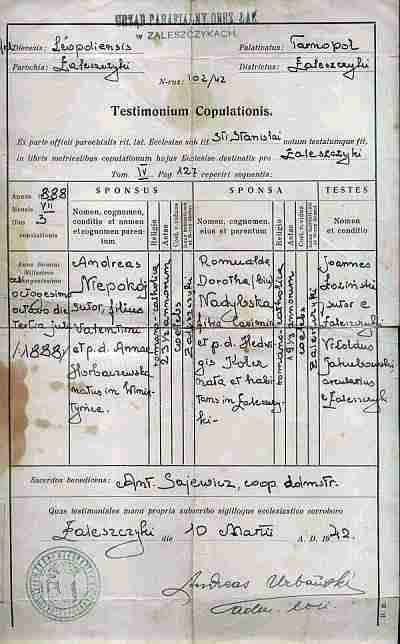 URZĄD PARAFIALNY OBRZ. ŁAĆ
W ZALESZCZYKACH.
Dioecesis Leopoliensis Palatinatus Tarnopol
Parochia Zaleszczyki Districtus Zaleszczyki
N-rus: 102/42
Testimonium Copulationis.
Ex parte officii parochialis rit. lat. Ecclesiae sub tit Sti Stanislai notum testatumque fit,
in libris metricalibus copulationum hujus Ecclesiae destinatis pro Zaleszczyki
Tom. IV Pag. 127 reperiri sequentia:
Annus 1888
Mensis VII
Dies 3
copulationis
SPONSUS
Nomen, cognomen,
conditio et nomen
et cognomen paren-
tum
Religio
Aetas
SPONSA
Nomen, cognomen,
ejus et parentum
Religio
Aetas
TESTES
Nomen
et conditio
Anno Domini
Millesimo
octingentesimo
octuagesimo
octavo die
tertia julii
/1888/
Andreas
Niepokój
sutor, filius
Valentini
et p.d. Annae
Horbaczewska
natus in Winia-
tyńce.
romano catholica
23½ annorum
coelebs
Zaleszczyki
Romualda
Dorothea
Nadylska
filia Casimiri
et p.d. Hedvi-
gis Koler
nata et habi-
tans in Zaleszczy-
ki-
romano catholica
19½ annorum
coelebs
Zaleszczyki
Joannes
Łoziński
sutor e
Zaleszczyki
Vitoldus
Jakubowski
arcularius
e Zaleszczyk
Sacerdos benedicens: Ant. Gajewicz, coop. dolmstr.
Quas testimoniales manu propria subscribo sigilloque ecclesiastico corroboro
Zaleszczyki die 10 Martii A. D. 1942.
Andreas Urbański